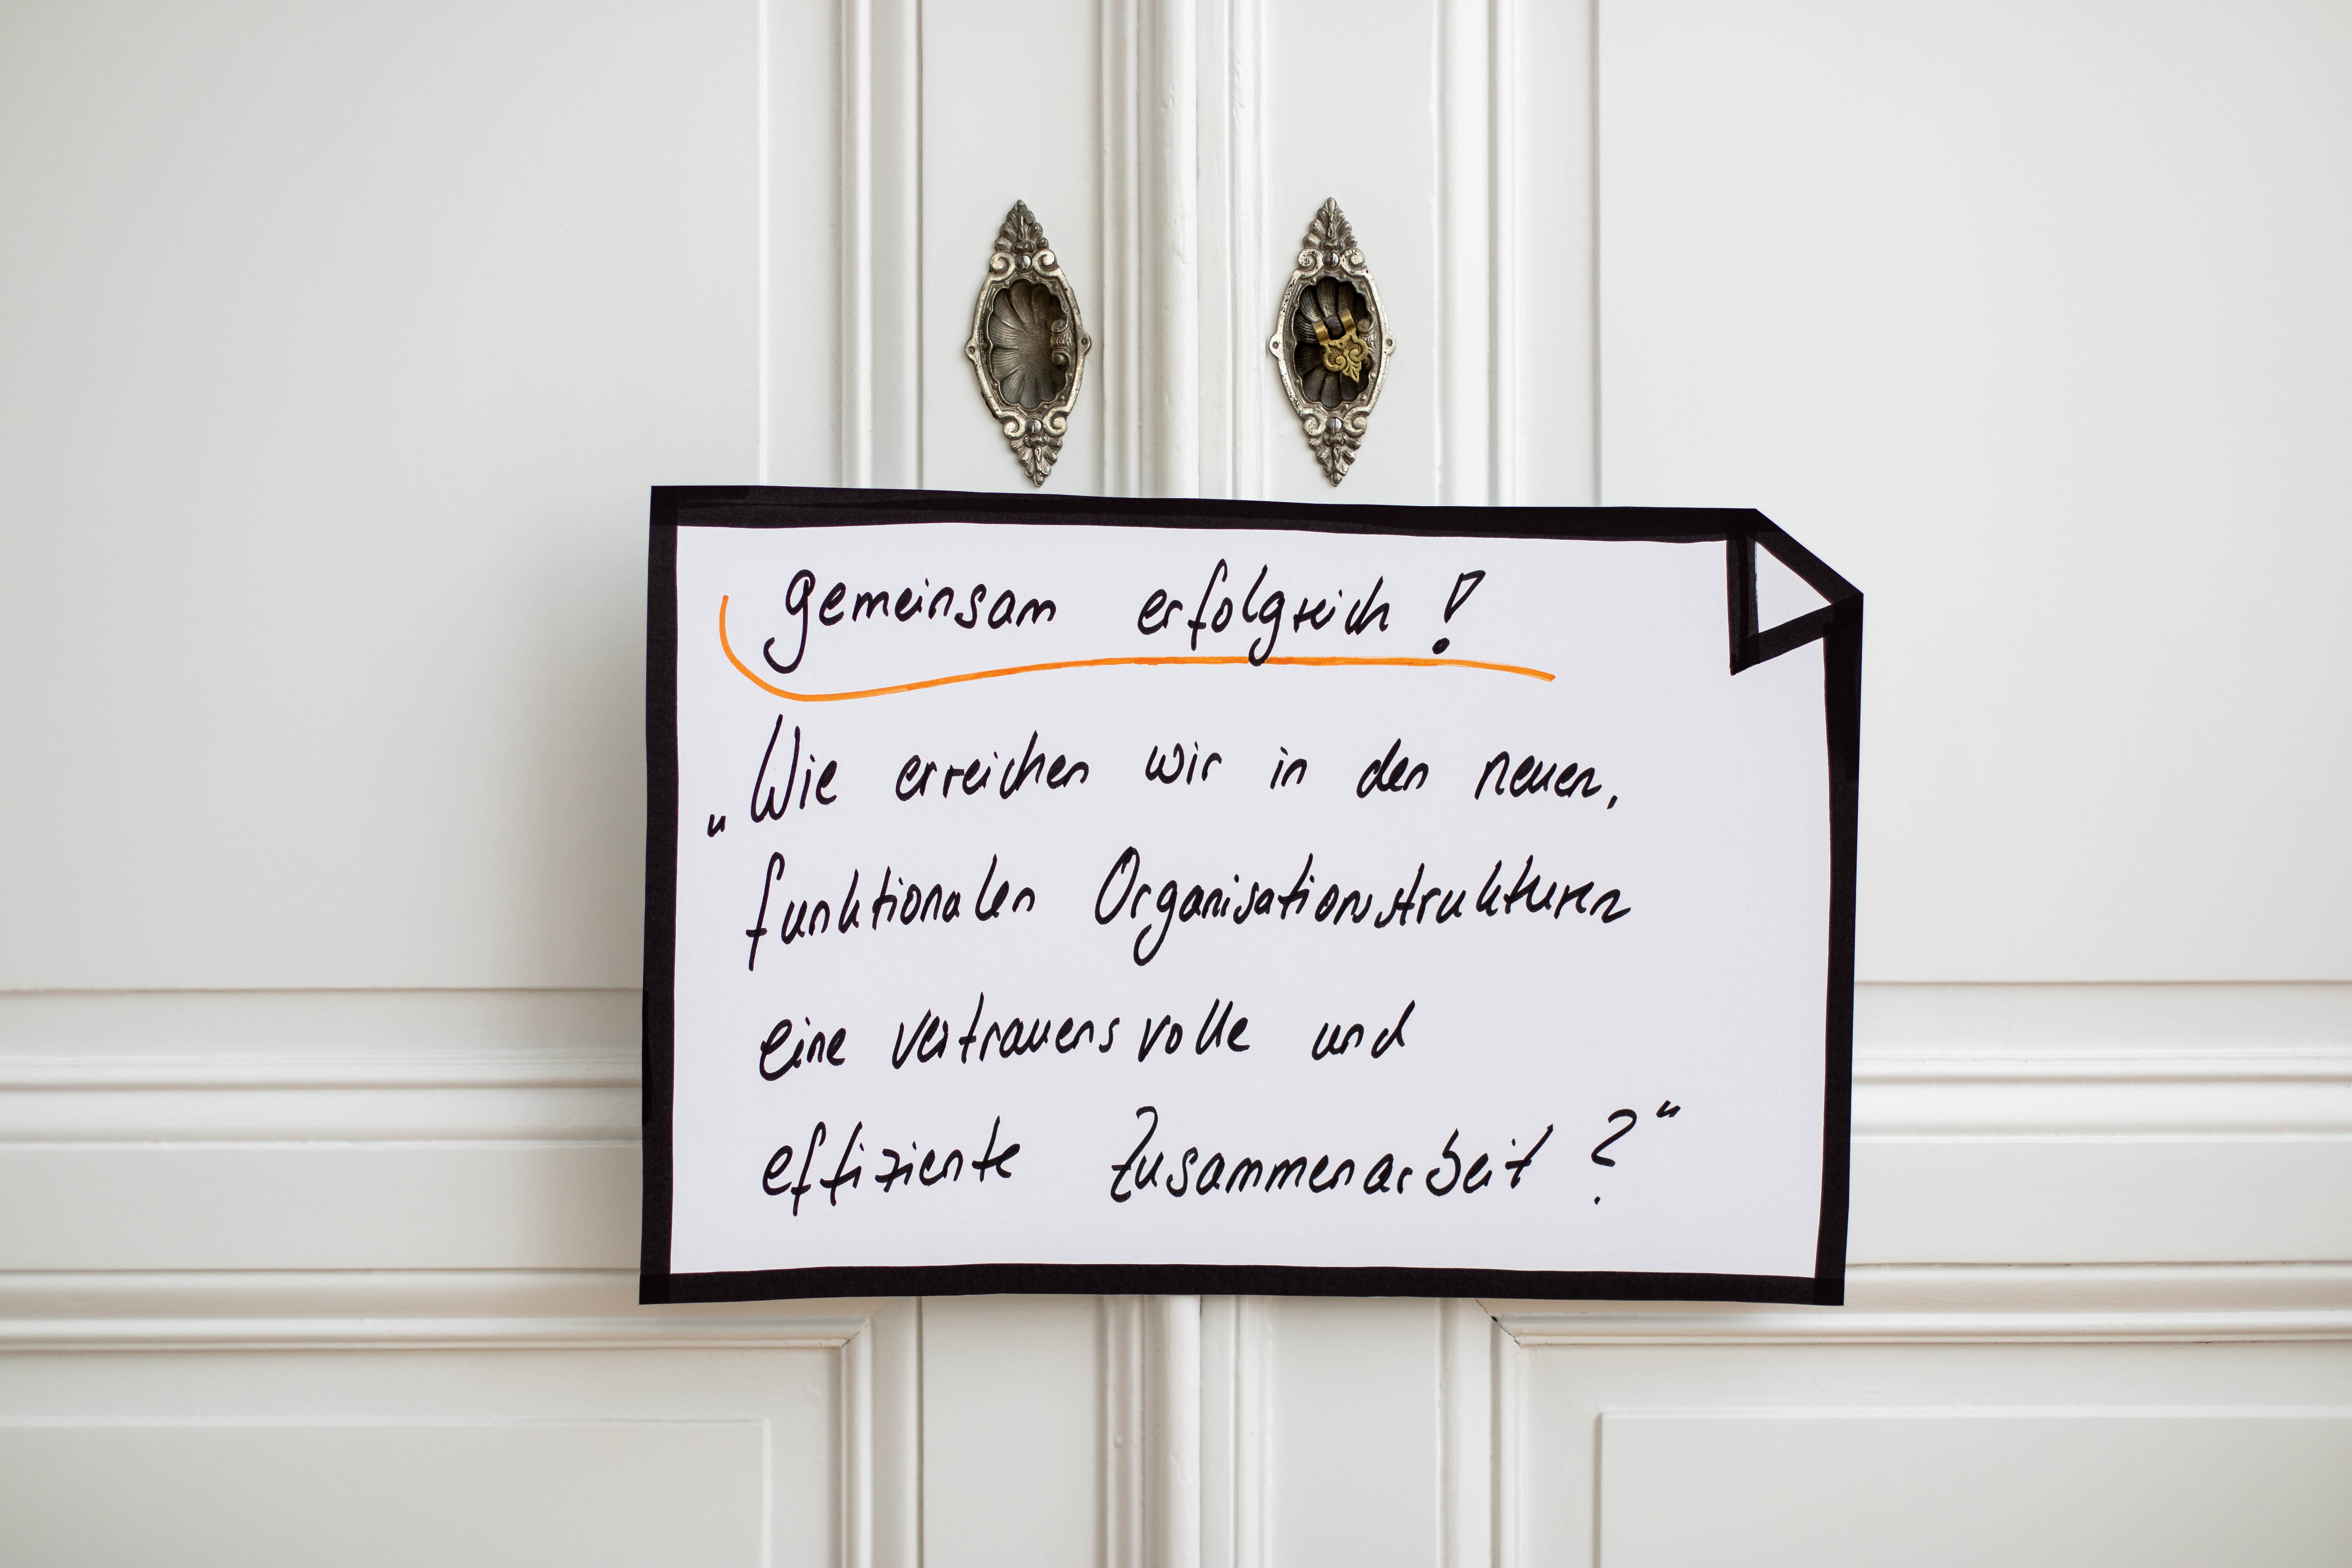 gemeinsam erfolgreich!
„Wie erreichen wir in den neuen,
funktionalen Organisationsstrukturen
eine vertrauensvolle und
effiziente Zusammenarbeit?"